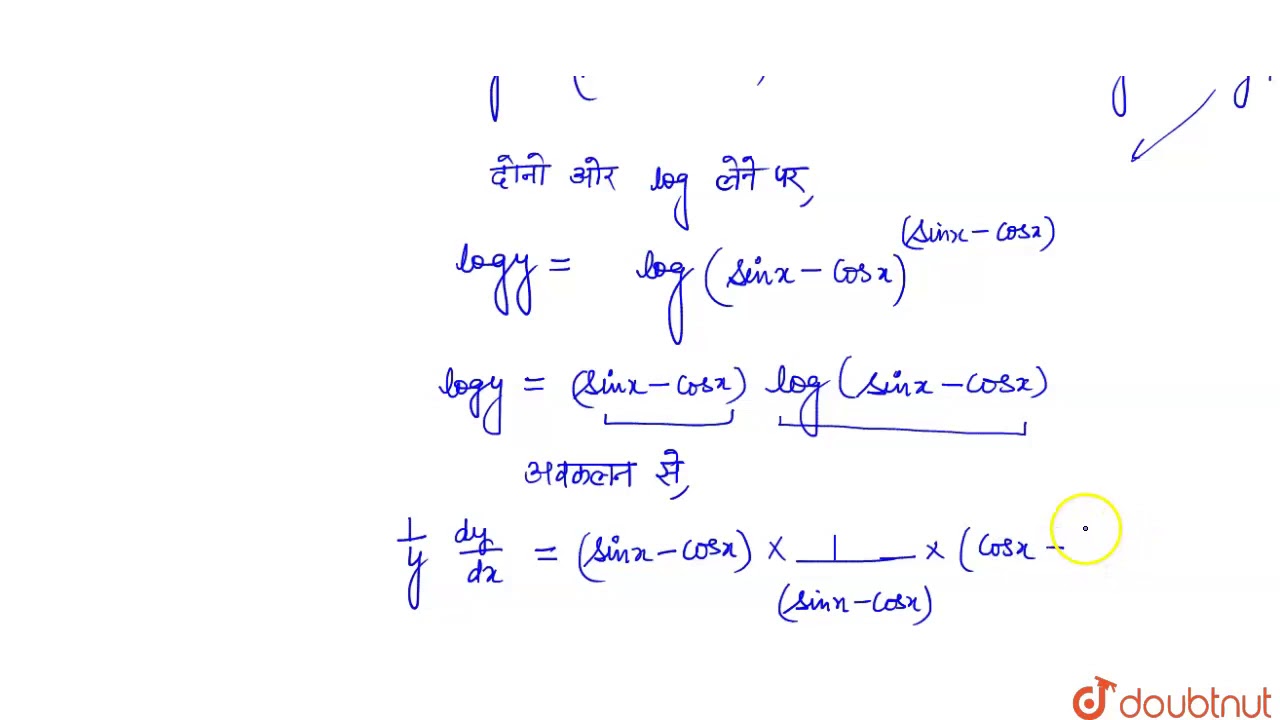 दोनो ओर log लेने पर,
logy = log(sinx - cosx)^(sinx - cosx)
logy = (sinx - cosx) log(sinx - cosx)
अवकलन से,
1/y dy/dx = (sinx - cosx) × 1/(sinx - cosx) × (cosx -
doubtnut